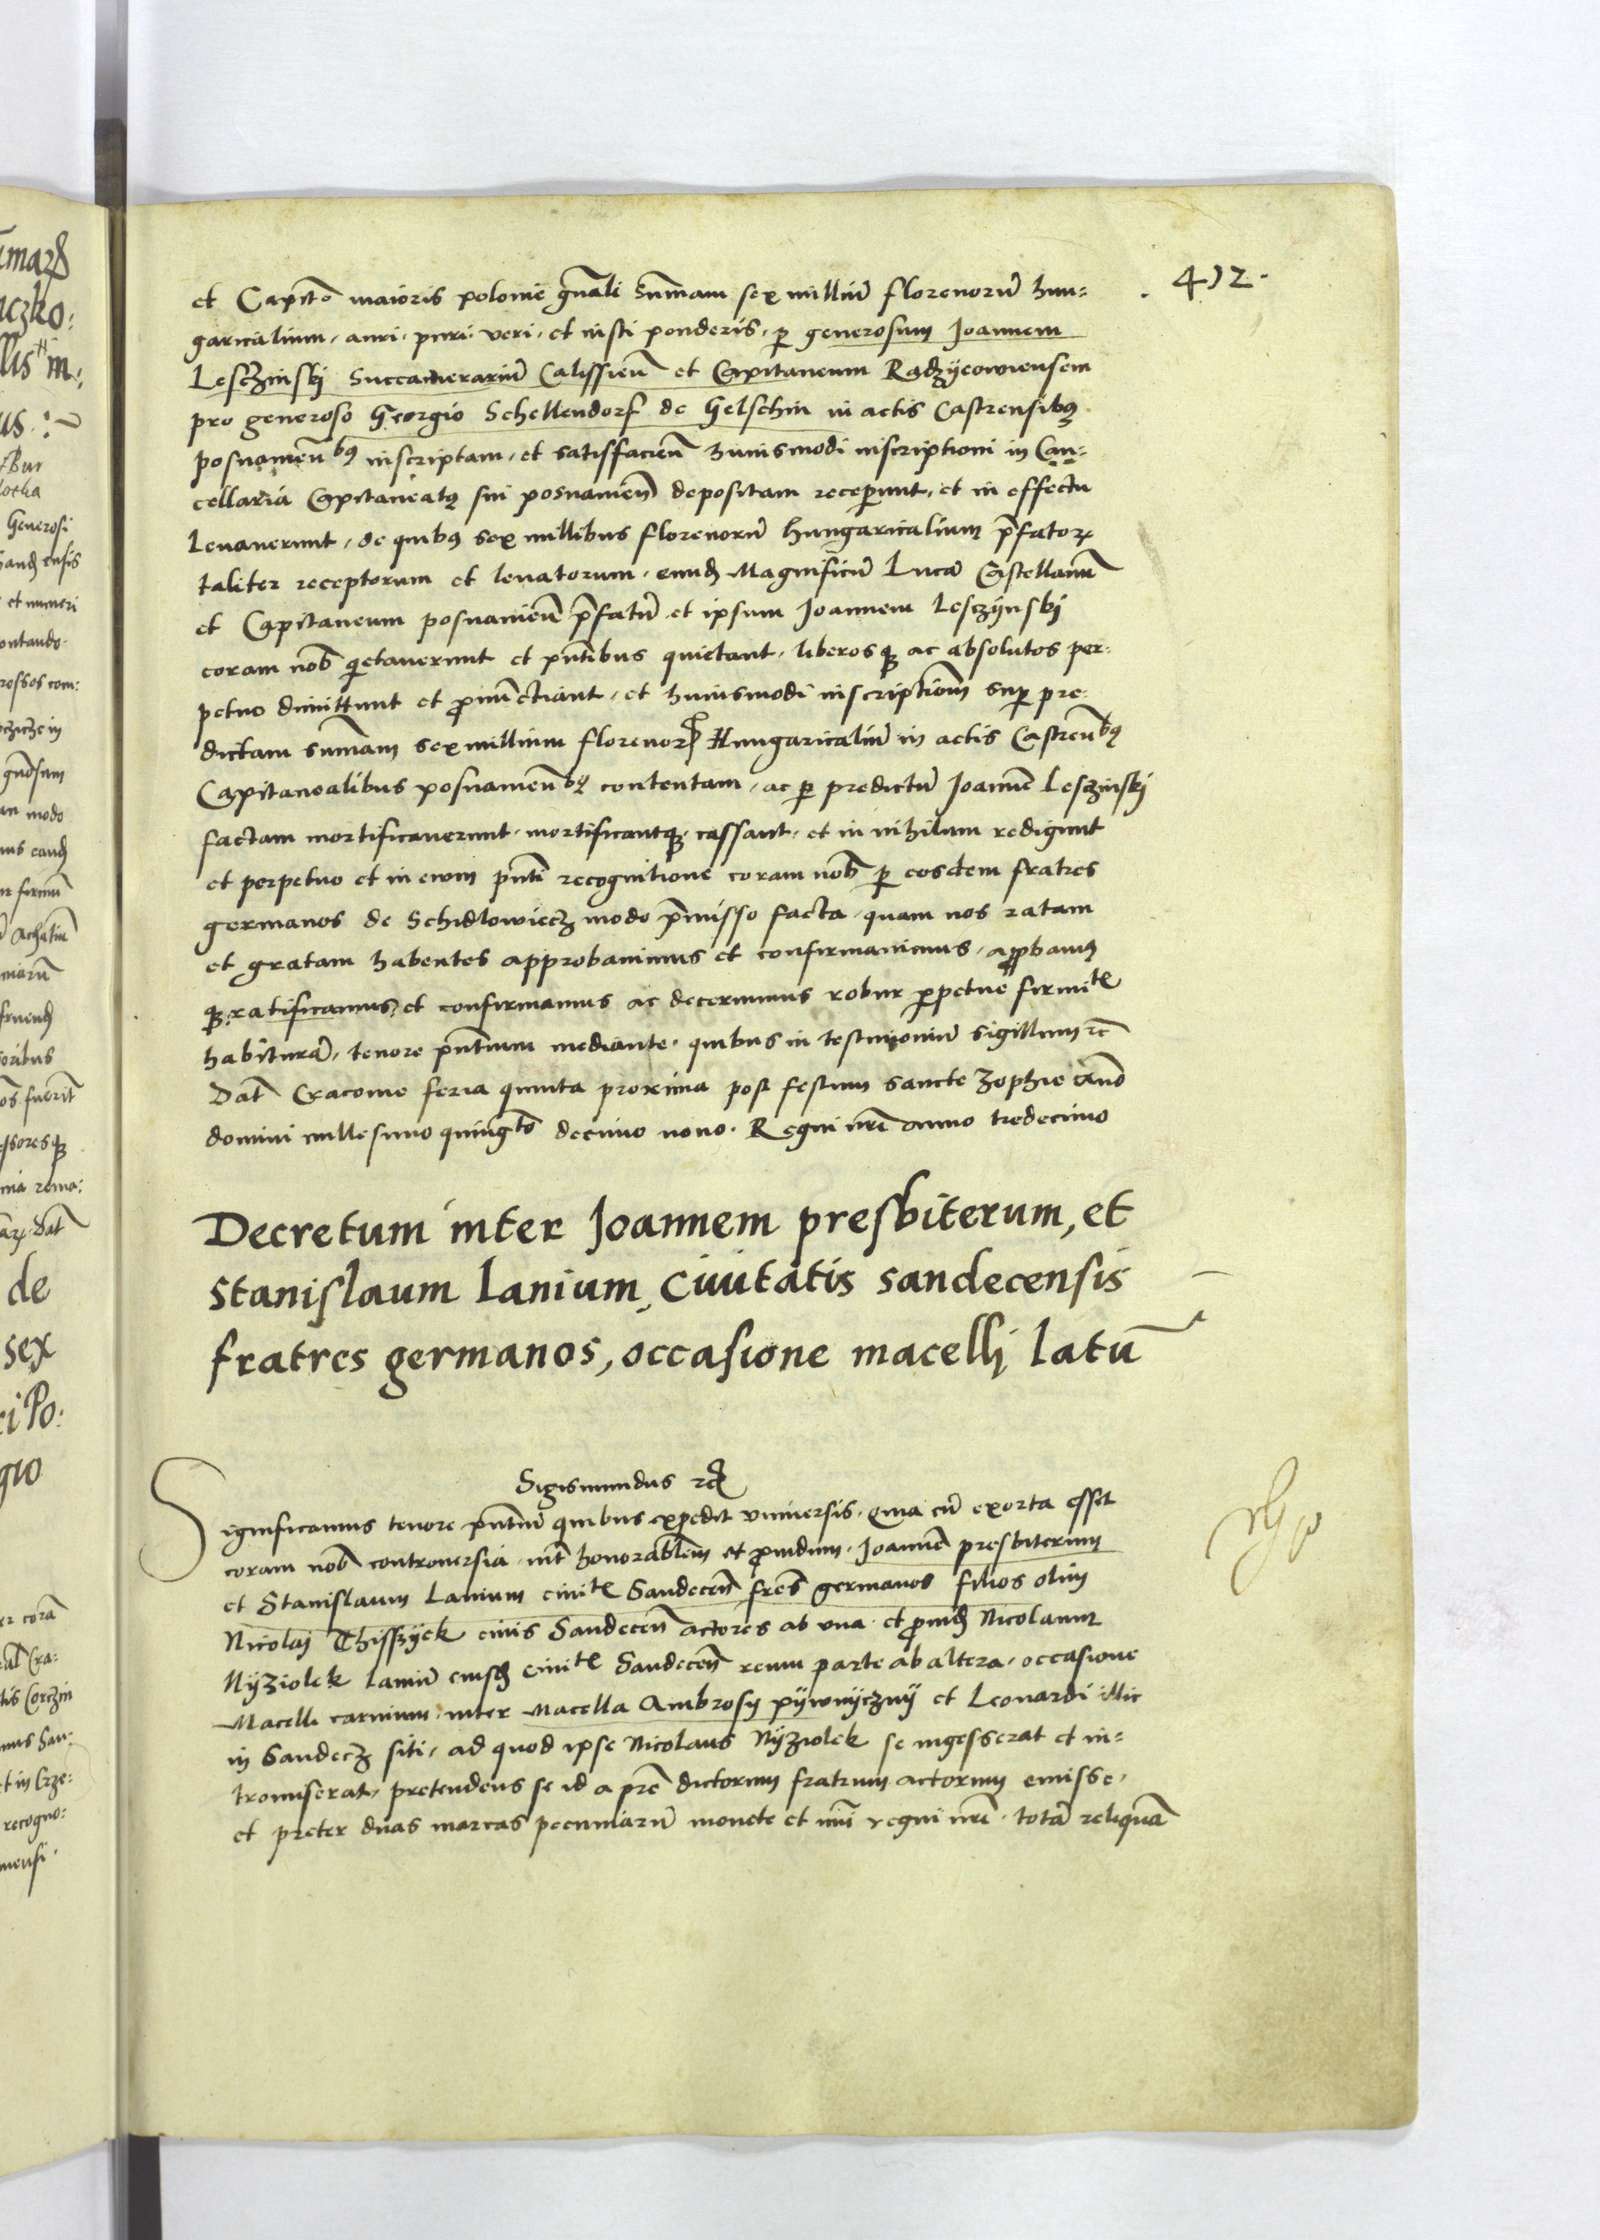 . 412.
et Capitō maioris polonie gn̄ali Sum̄am sex milliū florenorū hun=
garicalium, auri, puri, veri, et iusti ponderis, ꝑ generosum Joannem
Lesczinski Succamerariū Calissien̄ et Capitaneum Radzyeowiensem
pro generoso Georgio Schellendorf de Gelschin in actis Castrensibꝰ
posnamen̄bꝰ inscriptam, et satisfacien̄ huiusmodi inscriptioni in Can=
cellaria Capitaneatꝰ sui posnanien̄ depositam receperunt, et in effectu
Levaverunt, de quibꝰ sex millibus florenorū hungaricalium p̄fatorꝝ
taliter receptorum et levatorum, eund̄ Magnificū Lucā Castellanū
et Capitaneum posnanien̄ p̄fatū et ipsum Joannem Lesczynski
coram nob̄ qietaverunt et pn̄tibus quietant, liberosqꝫ ac absolutos per=
petuo dimittunt et ꝓnunctiant, et huiusmodi inscriptionē suꝑ pre=
dictam sum̄am sex millium florenorꝝ Hungaricaliū in actis Castren̄bꝰ
Capitanealibus posnamen̄bꝰ contentam, ac ꝑ predictū Joannē Lesczinski
factam mortificaverunt, mortificantqꝫ, cassant, et in nihilum redigunt
et perpetuo et in evum pn̄ti recognitione coram nob̄ ꝑ eosdem fratres
germanos de Schidlowiecz modo p̄misso facta, quam nos ratam
et gratam habentes approbavimus et confirmavimus, aꝓbamꝰ
qꝫ, ratificamus, et confirmamus ac decernimus robur ꝑpetue firmitꝭ
habiturā, tenore pn̄tium mediante, quibus in testimoniū sigillum ꝛc̄
Dat̄ Cracovie feria quinta proxima post festum sancte Zophie an̄o
domini millesimo quingto decimo nono. Regni nr̄i anno tredecimo
Decretum inter Joannem presbiterum, et
Stanislaum Lanium, Civitatis sandecensis
fratres germanos, occasione macelli latū
Sigismundus ꝛc̄
Significamus tenore pn̄tiū quibus expedit universis, Quia cū exorta esset
coram nob̄ controversia, int̄ honorabilem et ꝓvidum, Joannē presbiterum
et Stanislaum Lanium civitꝭ Sandecen̄ fres̄ germanos filios olim
Nicolai Thisszyek civis Sandecen̄ actores ab una, et ꝓvid̄ Nicolaum
Nyziolek laniū eiusd̄ civitꝭ Sandecen̄ reum parte ab altera, occasione
Macelli carnium, inter Macella Ambrosij pywnyczny et Leonardi illic
in Sandecz siti, ad quod ipse Nicolaus Nyziolek se ingesserat et in=
tromiserat, pretendens se id a pr̄e dictorum fratrum actorum emisse,
et preter duas marcas pecuniarū monete et nūi regni nr̄i, totā reliquā